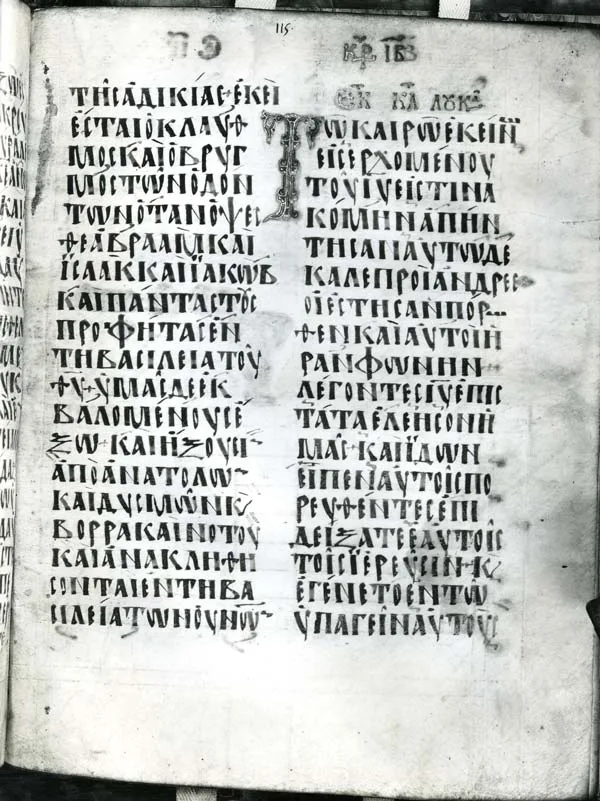 115
ΚΡ ΙΒ
ΤΗϹΑΔΙΚΙΑϹ·ΕΚΕΙ
ΕϹΤΑΙΟΚΛΑΥΘ
ΜΟϹΚΑΙΟΒΡΥΓ
ΜΟϹΤΩΝΟΔΟΝ
ΤΩΝΟΤΑΝΟΨΕϹ
ΘΕΑΒΡΑΑΜΚΑΙ
ΙϹΑΑΚΚΑΙΙΑΚΩΒ
ΚΑΙΠΑΝΤΑϹΤΟΥϹ
ΠΡΟΦΗΤΑϹΕΝ
ΤΗΒΑϹΙΛΕΙΑΤΟΥ
ΘΥ·ΥΜΑϹΔΕΕΚ
ΒΑΛΟΜΕΝΟΥϹΕ
ΞΩ·ΚΑΙΗΞΟΥϹΙ
ΑΠΟΑΝΑΤΟΛΩ
ΚΑΙΔΥϹΜΩΝΚ
ΒΟΡΡΑΚΑΙΝΟΤΟΥ
ΚΑΙΑΝΑΚΛΗΘΗ
ϹΟΝΤΑΙΕΝΤΗΒΑ
ϹΙΛΕΙΑΤΩΝΟΥΝΩ
ΕΚ ΚΑ ΛΟΥΚ
ΤΩΚΑΙΡΩΕΚΕΙΝ
ΕΙϹΕΡΧΟΜΕΝΟΥ
ΤΟΥΙΥΕΙϹΤΙΝΑ
ΚΟΜΗΝΑΠΗΝ
ΤΗϹΑΝΑΥΤΩΔΕ
ΚΑΛΕΠΡΟΙΑΝΔΡΕϹ
ΟΙΕϹΤΗϹΑΝΠΟΡ
ΘΕΝΚΑΙΑΥΤΟΙΗ
ΡΑΝΦΩΝΗΝ
ΛΕΓΟΝΤΕϹΙΥΕΠΙϹ
ΤΑΤΑΕΛΕΗϹΟΝΗ
ΜΑϹ·ΚΑΙΙΔΩΝ
ΕΙΠΕΝΑΥΤΟΙϹΠΟ
ΡΕΥΘΕΝΤΕϹΕΠΙ
ΔΕΙΞΑΤΕΕΑΥΤΟΙϹ
ΤΟΙϹΙΕΡΕΥϹΙΝ·Κ
ΕΓΕΝΕΤΟΕΝΤΩ
ΥΠΑΓΕΙΝΑΥΤΟΥϹ